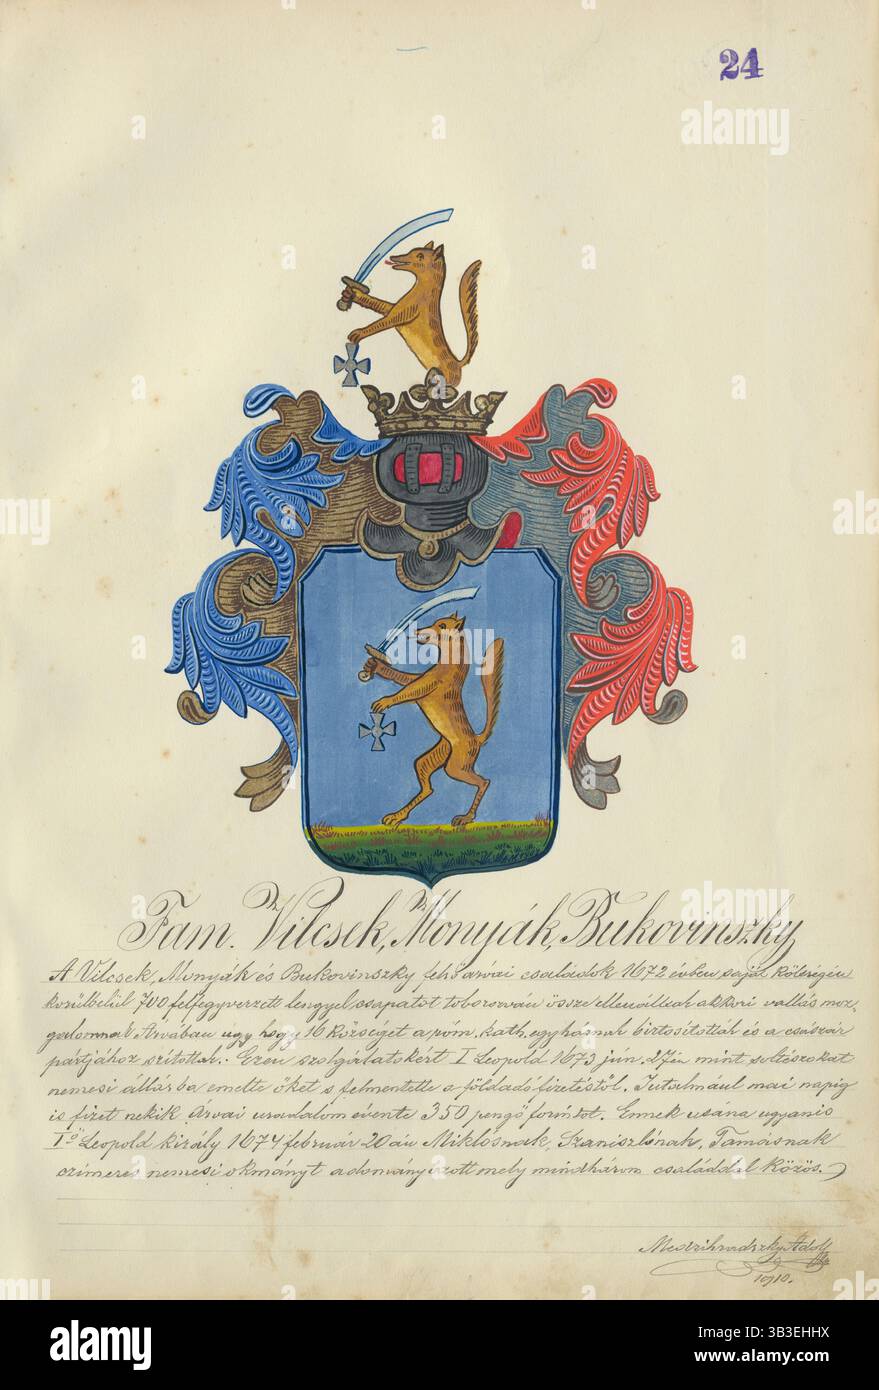 24
Fam. Vilcsek, Monyák, Bukovinszky
A Vilcsek, Monyák és Bukovinszky felső árvai családok 1672 évben saját költségén
körülbelül 700 felfegyverzett lengyel csapatot toborozván össze ellenálltak akkori vallás moz-
galomnak Árvában ugy hogy 16 községet a róm. kath. egyháznak biztosították és a császár
pártjához szították. Ezen szolgálatokért I Leopold 1673 jún. 27én mint soltészokat
nemesi állásba emelte őket s felmentette a földadó fizetéstől. Jutalmául mai napig
is fizet nekik árvai uradalom évente 350 pengő forintot. Ennek utána ugyanis
Iő Leopold király 1674 február 20án Miklósnak, Szaniszlónak, Tamásnak
czimeres nemesi okmányt adományozott mely mindhárom családdal közös.
Medzihradszky Adolf
1910.
alamy
Image ID: 3B3EHHX
www.alamy.com